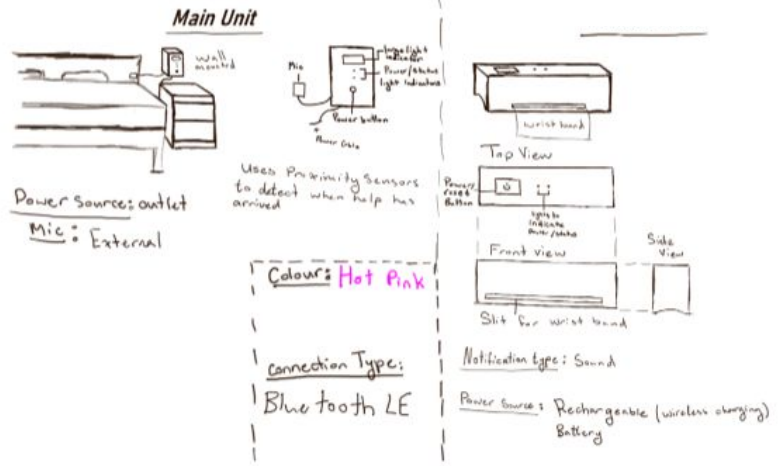 Main Unit
wall
mounted
Mic
large light
indicator
Power/status
light indicators
Power button
Power Cable
Uses Proximity Sensors
to detect when help has
arrived
Power Source: outlet
Mic: External
Colour: Hot Pink
Connection Type:
Bluetooth LE
wrist band
Top View
Power/
reset
Button
lights to
indicate
Power/status
Front view
Side
View
Slit for wrist band
Notification type: Sound
Power Source: Rechargeable (wireless charging)
Battery